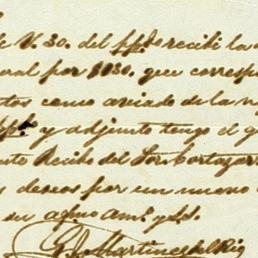 de V. 30. del pp.do recibi la
ral por 1830. que corresp
tos como criado de la
pp.do y adjunto tengo el g
nte Recibo del Sor. Cortazar
s deseos por un nuevo
su afmo. am.o y S.
G. J. Martinez del Rio